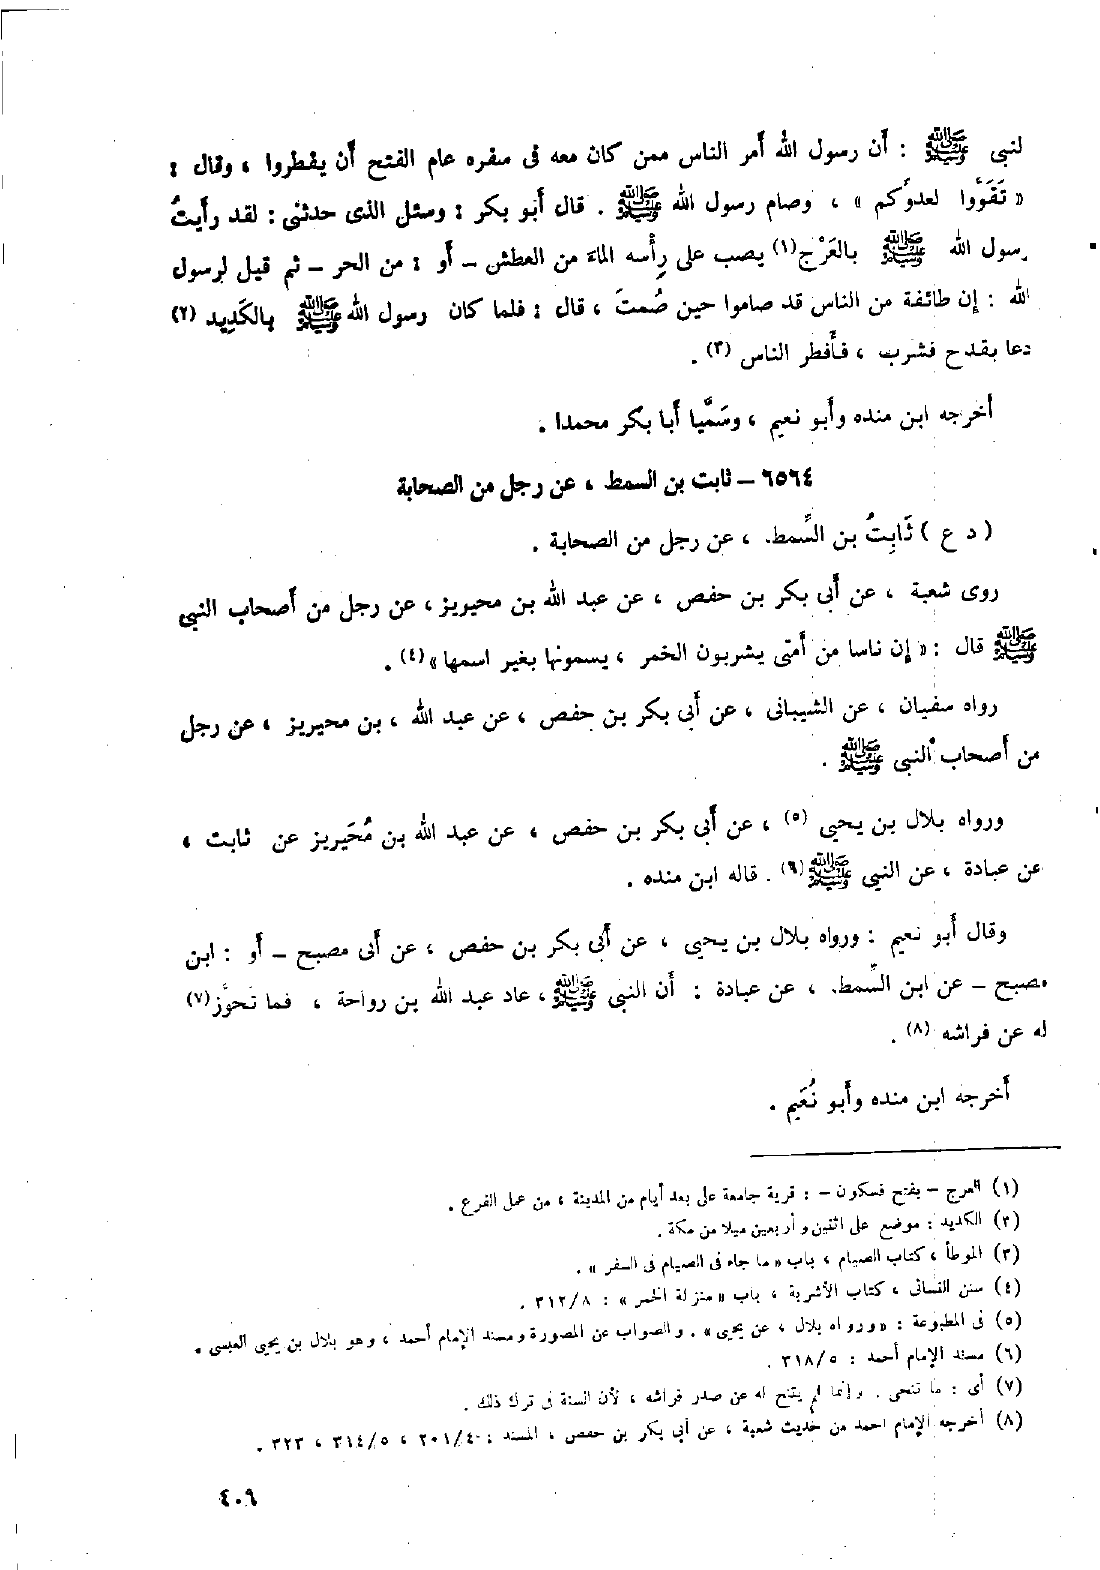 لنبي ﷺ : أن رسول الله أمر الناس ممن كان معه فى سفره عام الفتح أن يفطروا ، وقال :
« تَقَوَّوا لعدوِّكم » ، وصام رسول الله ﷺ . قال أبو بكر : وسئل الذى حدثنى : لقد رأيتُ
رسول الله ﷺ بالعَرْج(١) يصب على رأسه الماءَ من العطش – أو : من الحر – ثم قيل لرسول
الله : إن طائفة من الناس قد صاموا حين صُمتَ ، قال : فلما كان رسول الله ﷺ بالكَدِيد (٢)
دعا بقدح فشرب ، فأفطر الناس (٣) .
أخرجه ابن منده وأبو نعيم ، وسَمَّيا أبا بكر محمدا .
٦٥٦٤ – ثابت بن السمط ، عن رجل من الصحابة
( د ع ) ثَابِتُ بن السِّمط ، عن رجل من الصحابة .
روى شعبة ، عن أبى بكر بن حفص ، عن عبد الله بن محيريز ، عن رجل من أصحاب النبى
ﷺ قال : « إن ناسا من أمتى يشربون الخمر ، يسمونها بغير اسمها » (٤) .
رواه سفيان ، عن الشيبانى ، عن أبى بكر بن حفص ، عن عبد الله ، بن محيريز ، عن رجل
من أصحاب النبى ﷺ .
ورواه بلال بن يحيى (٥) ، عن أبى بكر بن حفص ، عن عبد الله بن مُحَيريز عن ثابت ،
عن عبادة ، عن النبى ﷺ (٦) . قاله ابن منده .
وقال أبو نعيم : ورواه بلال بن يحيى ، عن أبى بكر بن حفص ، عن أبى مصبح – أو : ابن
مصبح – عن ابن السِّمط ، عن عبادة : أن النبى ﷺ ، عاد عبد الله بن رواحة ، فما تحوَّز (٧)
له عن فراشه (٨) .
أخرجه ابن منده وأبو نُعَيم .
(١) العرج – بفتح فسكون – : قرية جامعة على بعد أيام من المدينة ، من عمل الفرع .
(٢) الكديد : موضع على اثنين وأربعين ميلا من مكة .
(٣) الموطأ ، كتاب الصيام ، باب « ما جاء فى الصيام فى السفر » .
(٤) سنن النسائى ، كتاب الأشربة ، باب « منزلة الخمر » : ٣١٢/٨ .
(٥) فى المطبوعة : « ورواه بلال ، عن يحيى » . والصواب عن المصورة ومسند الإمام أحمد ، وهو بلال بن يحيى العبسى .
(٦) مسند الإمام أحمد : ٣١٨/٥ .
(٧) أى : ما تنحى . وإنما لم يتنح له عن صدر فراشه ، لأن السنة فى ترك ذلك .
(٨) أخرجه الإمام احمد من حديث شعبة ، عن أبى بكر بن حفص ، المسند : ٢٠١/٤ ، ٣١٤/٥ ، ٣٢٣ .
٤٠٩